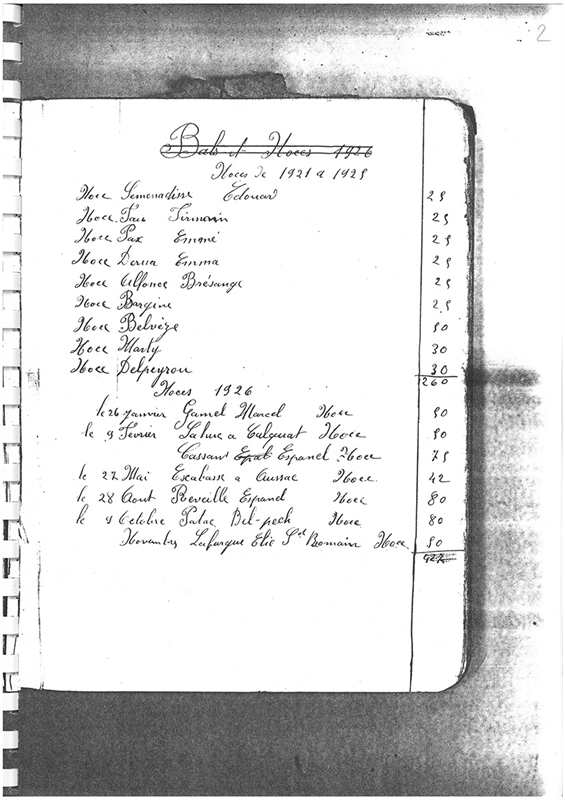 2
Bals et Noces 1926
Noces de 1921 a 1925
Noce Semenadisse Edouard 25
Noce Faux Firmin 25
Noce Pax Emmé 25
Noce Dorua Emma 25
Noce Alfonce Brésange 25
Noce Bargine 25
Noce Belvèze 50
Noce Marty 30
Noce Delpeyrou 30
260
Noces 1926
le 26 janvier Gamel Marcel Noce 50
le 9 Fevrier a Noce 50
Cassan Espanel Noce 75
le 27 Mai Escabasse a Aussac Noce 42
le 28 Aout Reveille Espanel Noce 80
le 9 Octobre Palac Bel-pech Noce 80
Novembre Lafargue Elie St Romain Noce 50
427